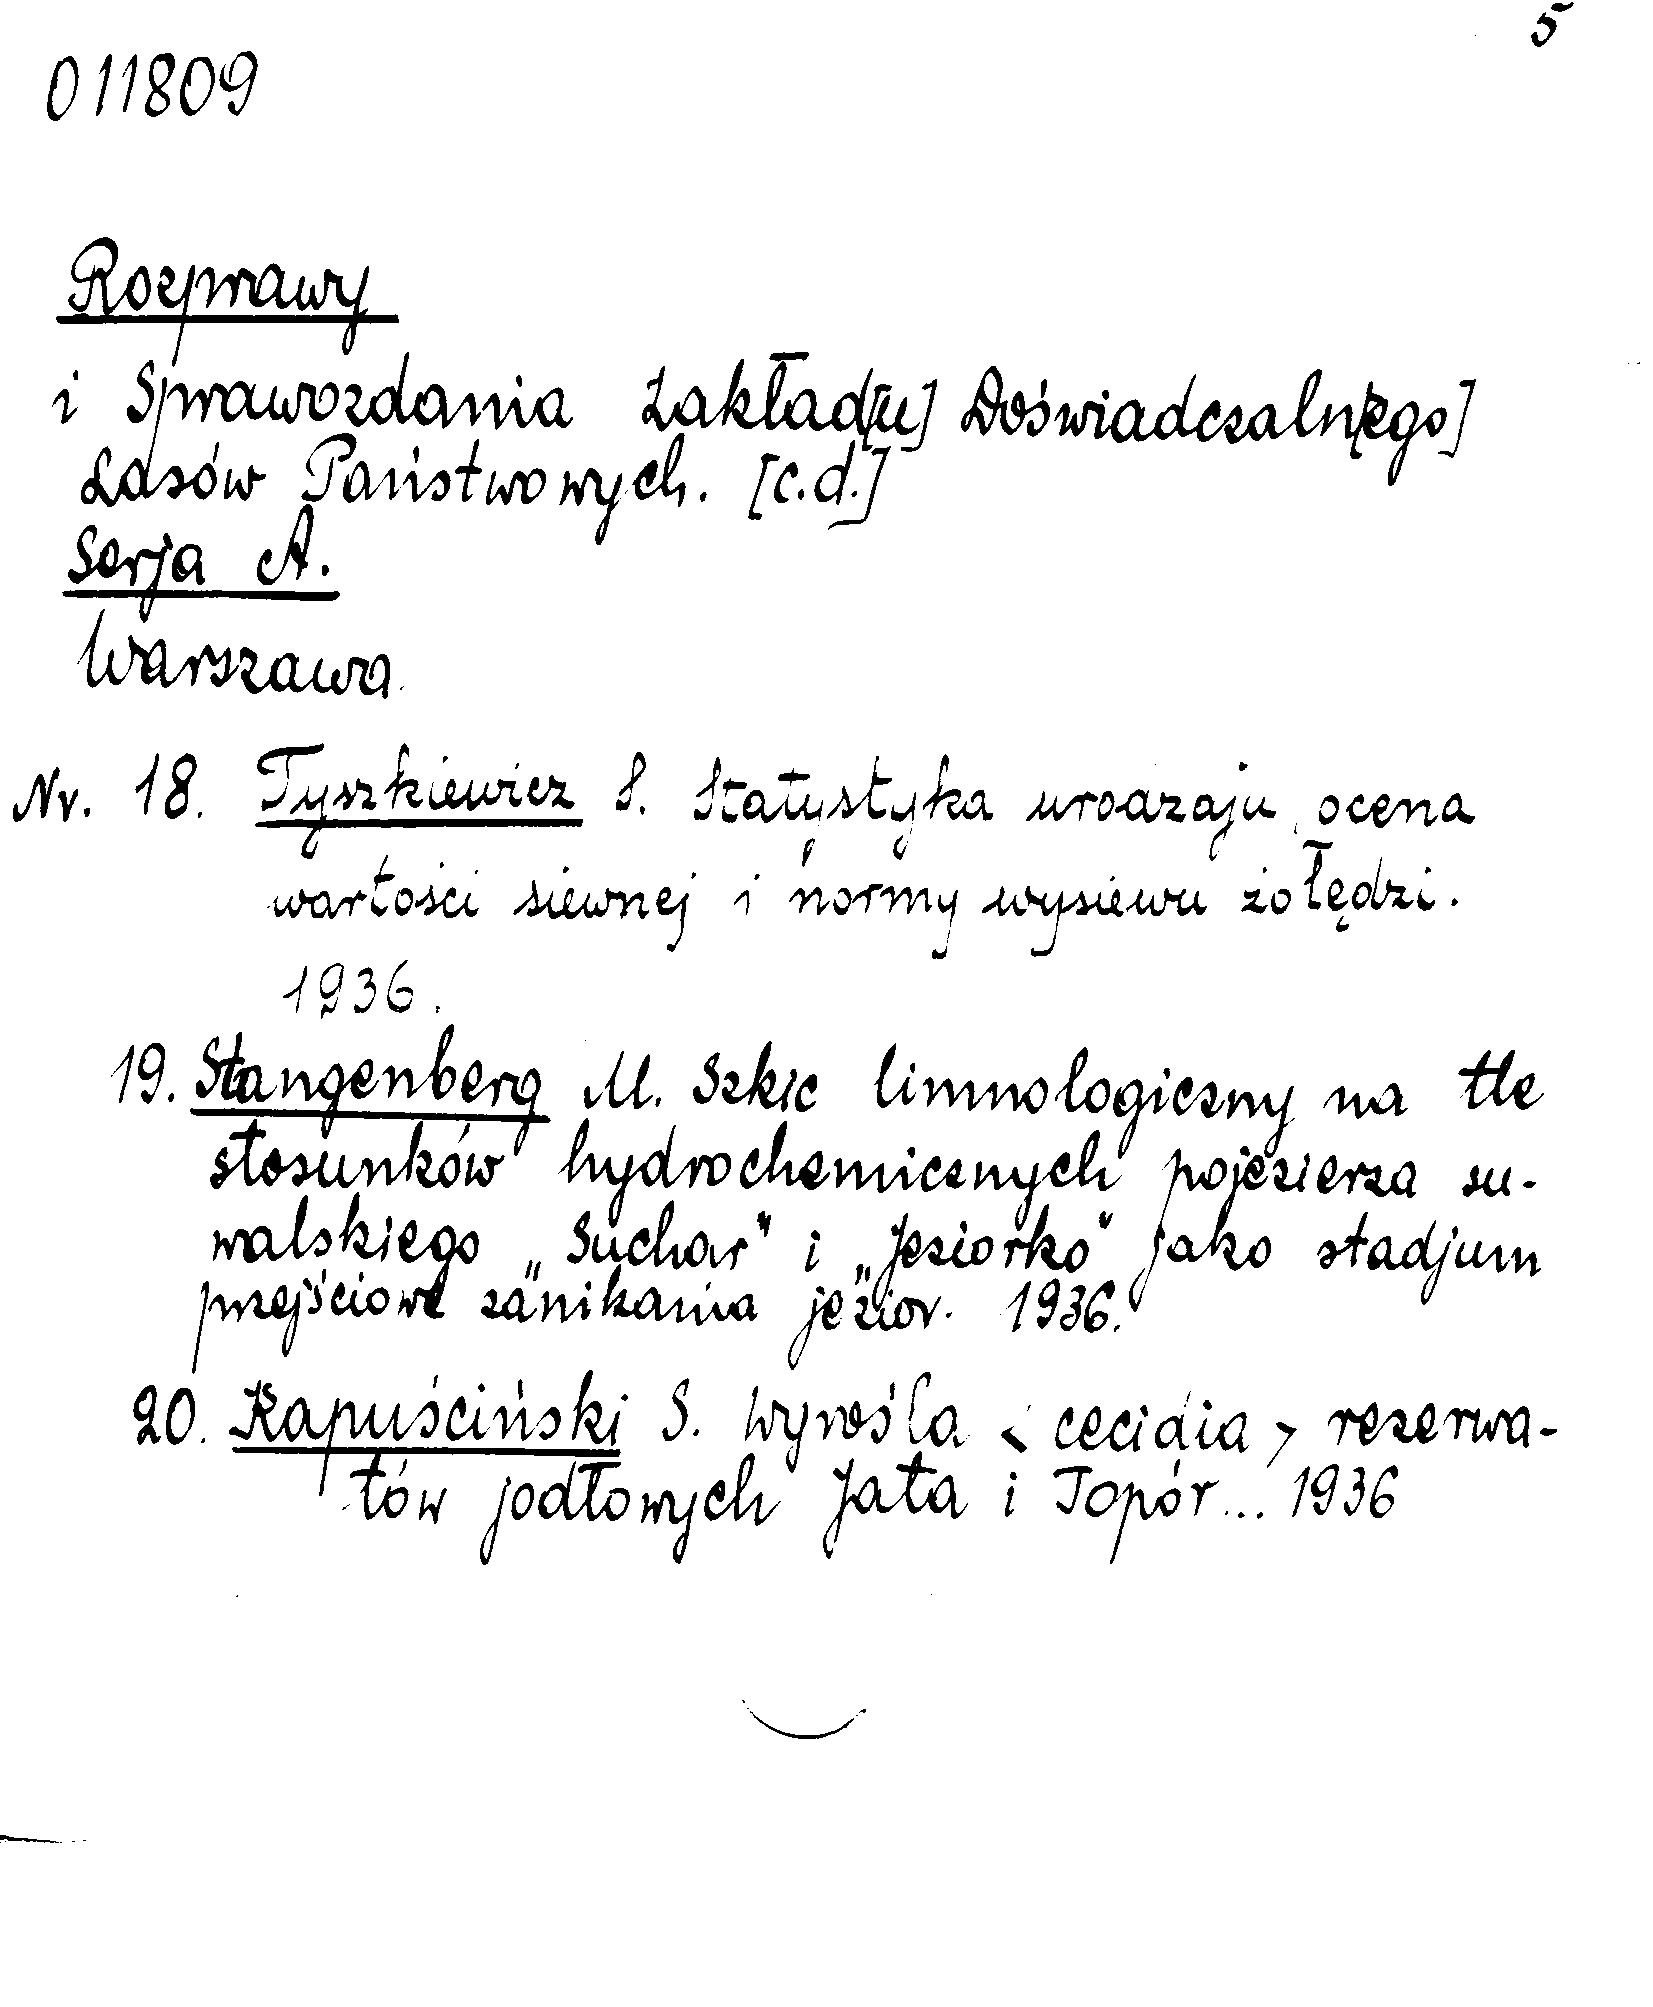 5
011809
Rozprawy
i Sprawozdania Zakład[u] Doświadczaln[ego]
Lasów Państwowych. [c.d.]
Serja A.
Warszawa
Nr. 18. Tyszkiewicz S. Statystyka urodzaju, ocena
wartości siewnej i normy wysiewu żołędzi.
1936.
19. Stangenberg M. Szkic limnologiczny na tle
stosunków hydrochemicznych pojezierza su-
walskiego „Suchar" i „Jeziorko" jako stadjum
przejściowe zanikania jezior. 1936.
20. Kapuściński S. Wyrośla < cecidia > rezerwa-
tów jodłowych Jata i Topór... 1936